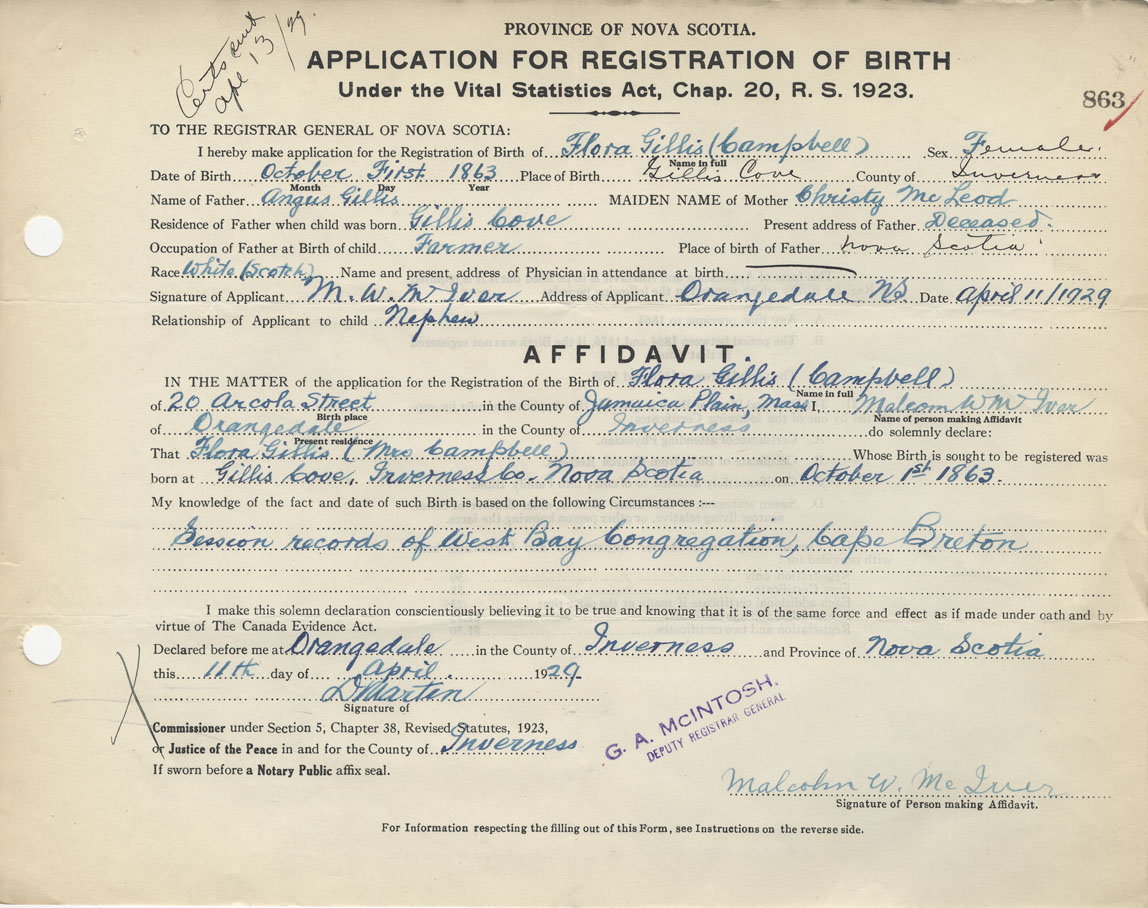 Certs sent
Ape 13/29.
PROVINCE OF NOVA SCOTIA.
APPLICATION FOR REGISTRATION OF BIRTH
Under the Vital Statistics Act, Chap. 20, R. S. 1923.
863
TO THE REGISTRAR GENERAL OF NOVA SCOTIA:
I hereby make application for the Registration of Birth of Flora Gillis (Campbell) Sex Female.
Name in full
Date of Birth October First 1863 Place of Birth Gillis Cove County of Inverness
Month Day Year
Name of Father Angus Gillis MAIDEN NAME of Mother Christy McLeod
Residence of Father when child was born Gillis Cove Present address of Father Deceased.
Occupation of Father at Birth of child Farmer Place of birth of Father Nova Scotia
Race White (Scotch) Name and present address of Physician in attendance at birth
Signature of Applicant M. W. McIver Address of Applicant Orangedale NS Date April 11/1929
Relationship of Applicant to child Nephew
AFFIDAVIT.
IN THE MATTER of the application for the Registration of the Birth of Flora Gillis (Campbell)
Name in full
of 20 Arcola Street in the County of Jamaica Plain, Mass I, Malcom W McIver
Birth place Name of person making Affidavit
of Orangedale in the County of Inverness do solemnly declare:
Present residence
That Flora Gillis (Mrs Campbell) Whose Birth is sought to be registered was
born at Gillis Cove, Inverness Co. Nova Scotia on October 1st 1863.
My knowledge of the fact and date of such Birth is based on the following Circumstances :---
Session records of West Bay Congregation, Cape Breton
I make this solemn declaration conscientiously believing it to be true and knowing that it is of the same force and effect as if made under oath and by
virtue of The Canada Evidence Act.
Declared before me at Orangedale in the County of Inverness and Province of Nova Scotia
this 11th day of April 1929
D Martin
Signature of
Commissioner under Section 5, Chapter 38, Revised Statutes, 1923,
or Justice of the Peace in and for the County of Inverness
If sworn before a Notary Public affix seal.
G. A. McINTOSH,
DEPUTY REGISTRAR GENERAL
Malcohn W. McIver
Signature of Person making Affidavit.
For Information respecting the filling out of this Form, see Instructions on the reverse side.